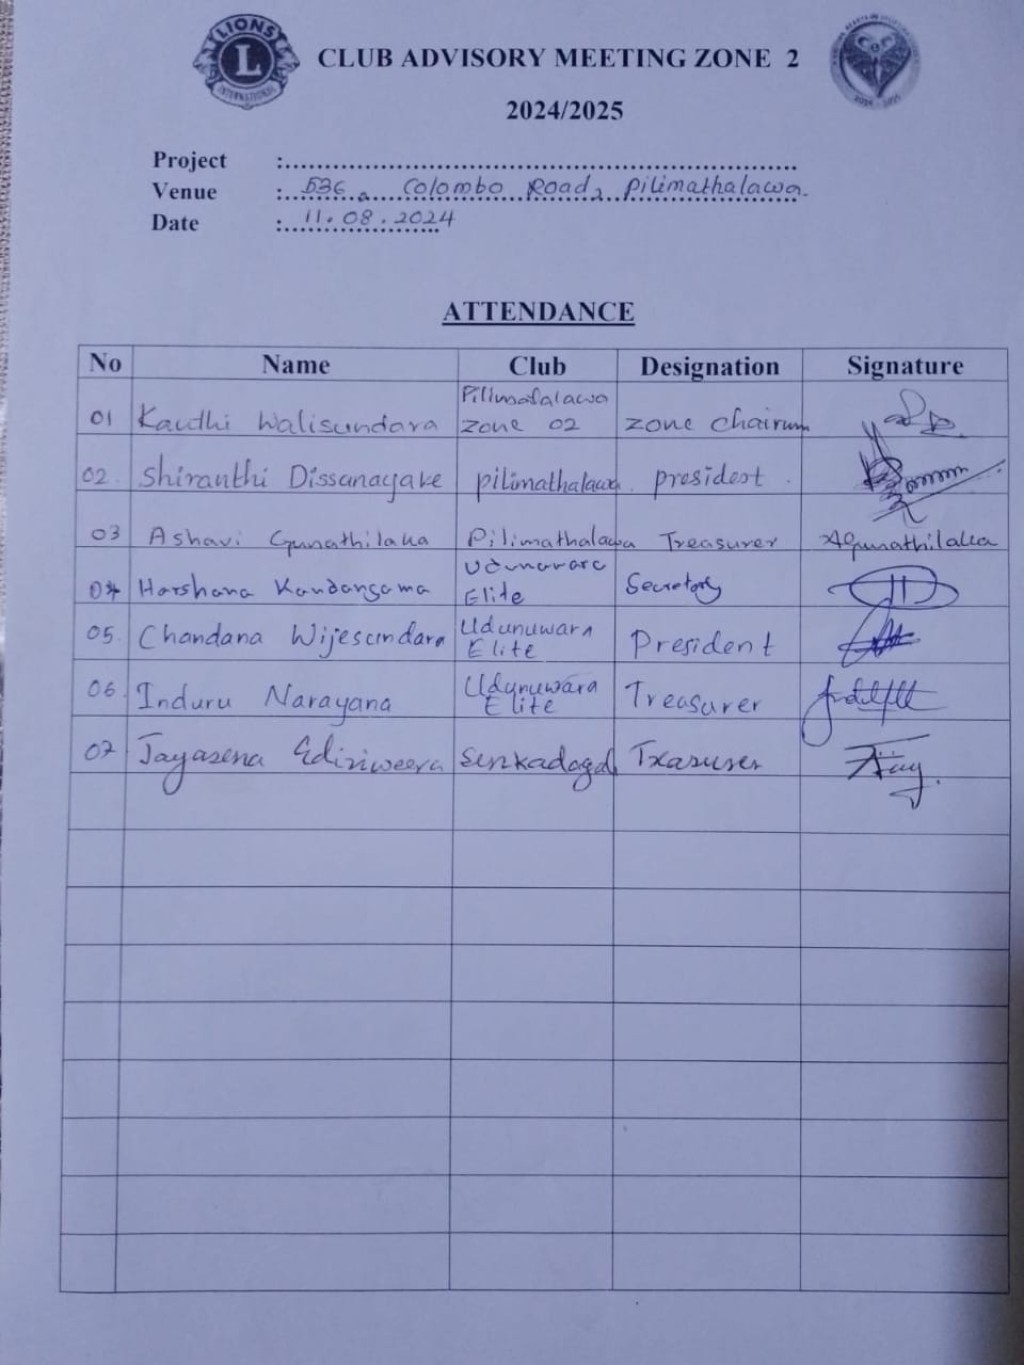 LIONS
L
INTERNATIONAL
CLUB ADVISORY MEETING ZONE 2
2024/2025
Project :
Venue : 536, Colombo Road, Pilimathalawa.
Date : 11.08.2024
ATTENDANCE
No Name Club Designation Signature
01 Kaudhi Walisundara Pilimatalawa zone 02 zone chairum
02. Shiranthi Dissanayake pilimathalawa president.
03 Ashavi Gunathilaka Pilimathalawa Treasurer AGunathilaka
04 Harshana Kandangama Elite Secretary
05. Chandana Wijesundara Udunuwara Elite President
06. Induru Narayana Udunuwara Elite Treasurer
07 Jayasena Ediriweera Senkadagala Treasurer